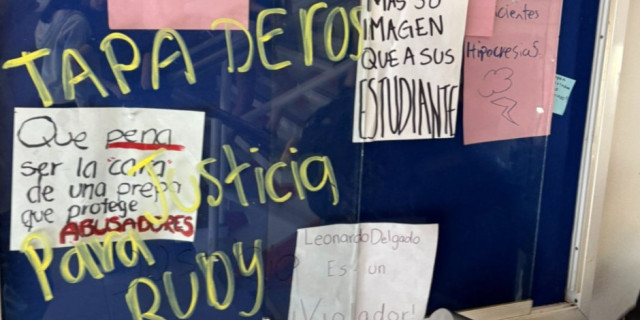 TAPADEROS
MAS SU
IMAGEN
QUE A SUS
ESTUDIANTE
cientes
Hipocresias
Que pena
ser la "cara"
de una prepa
que protege
ABUSADORES
Justicia
Para
RUDY
Leonardo Delgado
Es un
¡Violador!